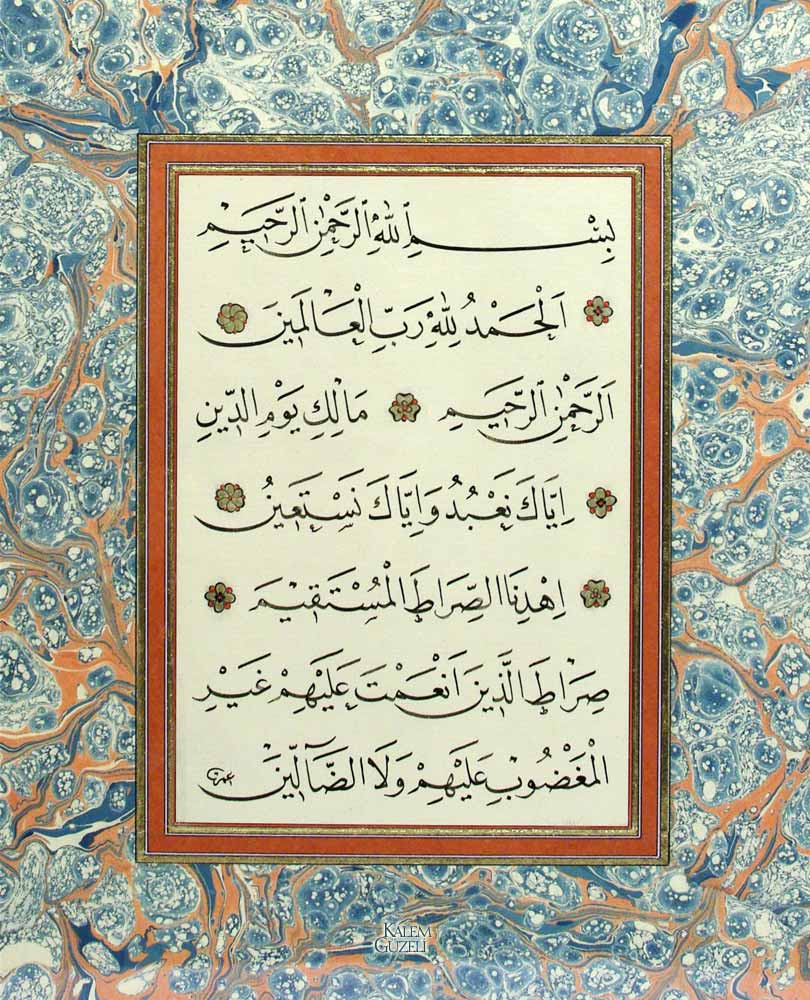 بِسْمِ ٱللّٰهِ ٱلرَّحْمٰنِ ٱلرَّحٖيمِ
اَلْحَمْدُ لِلّٰهِ رَبِّ الْعَالَمٖينَ
اَلرَّحْمٰنِ ٱلرَّحٖيمِ مَالِكِ يَوْمِ الدّٖينِ
اِيَّاكَ نَعْبُدُ وَاِيَّاكَ نَسْتَعٖينُ
اِهْدِنَا الصِّرَاطَ الْمُسْتَقٖيمَ
صِرَاطَ الَّذٖينَ اَنْعَمْتَ عَلَيْهِمْ غَيْرِ
الْمَغْضُوبِ عَلَيْهِمْ وَلَا الضَّٓالّٖينَ
KALEM
GÜZELİ